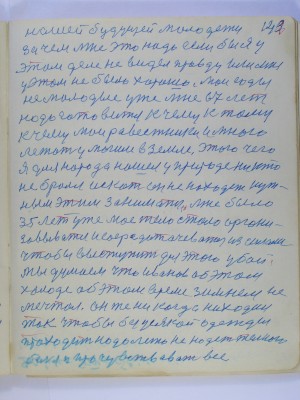 нашей будущей молодежи 129
зачем мне это надо если бы я у
этом деле не видел правду истина
у этом не было хорошо. Мои годы
не молодые уже мне 67 лет
надо готовится к чему к тому
к чему мои ровестники и много
лежат у могиле в земле, этого чего
я для народа нашел у природе никто
не брался искать он не находит нуж-
ным этим заниматся, мне было
35 лет уже мое тело стало органи-
зовывать и сосредотачевать из силами
чтобы выступить для этого убой.
мы думаем что иванов об этом
холоде об этом время зимнем не
мечтал. он же никогда не ходил
так чтобы без всякой одежды
приходит надолго не надет только
было прочувствовать все